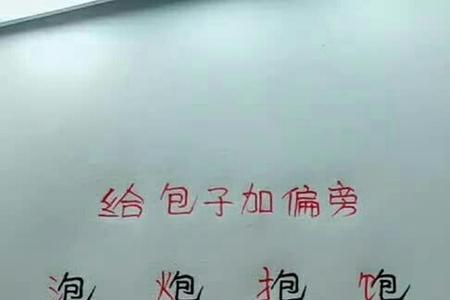 给包子加偏旁
泡 炮 抱 饱